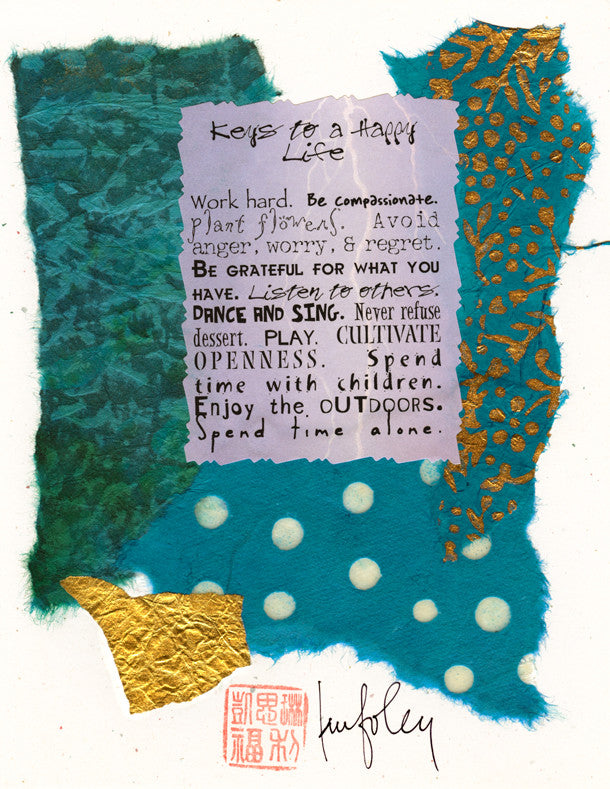 Keys to a Happy
Life
Work hard. Be compassionate.
plant flowers. Avoid
anger, worry, & regret.
BE GRATEFUL FOR WHAT YOU
HAVE. Listen to others.
DANCE AND SING. Never refuse
dessert. PLAY. CULTIVATE
OPENNESS. Spend
time with children.
Enjoy the OUTDOORS.
Spend time alone.
凱思琳
福利
foley